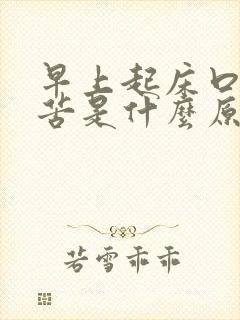 早上起床口
苦是什麼原
若雪乖乖